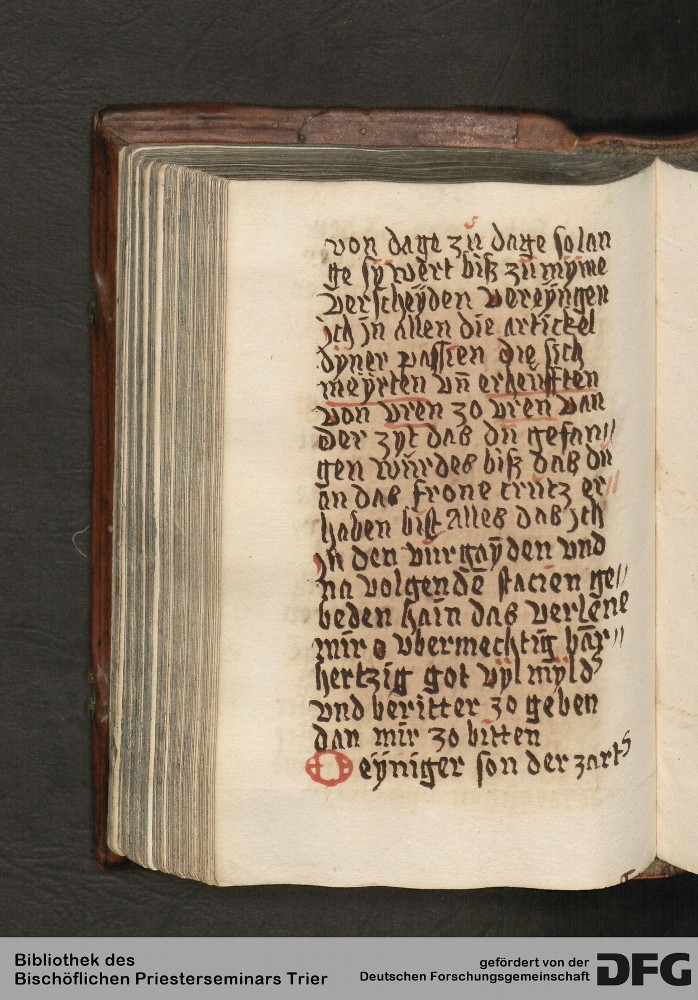 von dage zů dage so lan
ge sÿ wert biß zů mÿme
verscheÿden vereÿngen
ich jn allen die artickel
dÿner passien die sich
meÿrten vn̄ erheufften
von vren zo vren van
der zÿt das dů gefan//
gen wůrdes biß das dů
an das frone crůtz er//
haben bist Alles das jch
jn den vůrgaÿden vnd
na volgendē stacien ge//
beden hain das verlene
mir o vbermechtig bar//
hertzig got vÿl mÿld
vnd beritter zo geben
dan mir zo bitten
O eÿniger son der zart
Bibliothek des
Bischöflichen Priesterseminars Trier
gefördert von der
Deutschen Forschungsgemeinschaft
DFG